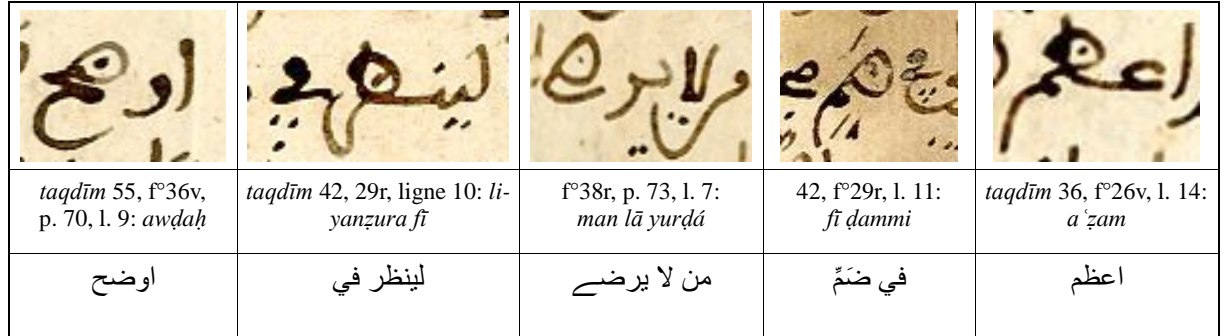 اوضح
لينظر في
من لا يرضے
في ضم
اعظم
taqdīm 55, f°36v,
p. 70, l. 9: awḍaḥ
taqdīm 42, 29r, ligne 10: li-
yanẓura fī
f°38r, p. 73, l. 7:
man lā yurḍá
42, f°29r, l. 11:
fī ḍammi
taqdīm 36, f°26v, l. 14:
aʿẓam
اوضح
لينظر في
من لا يرضے
في ضَمِّ
اعظم